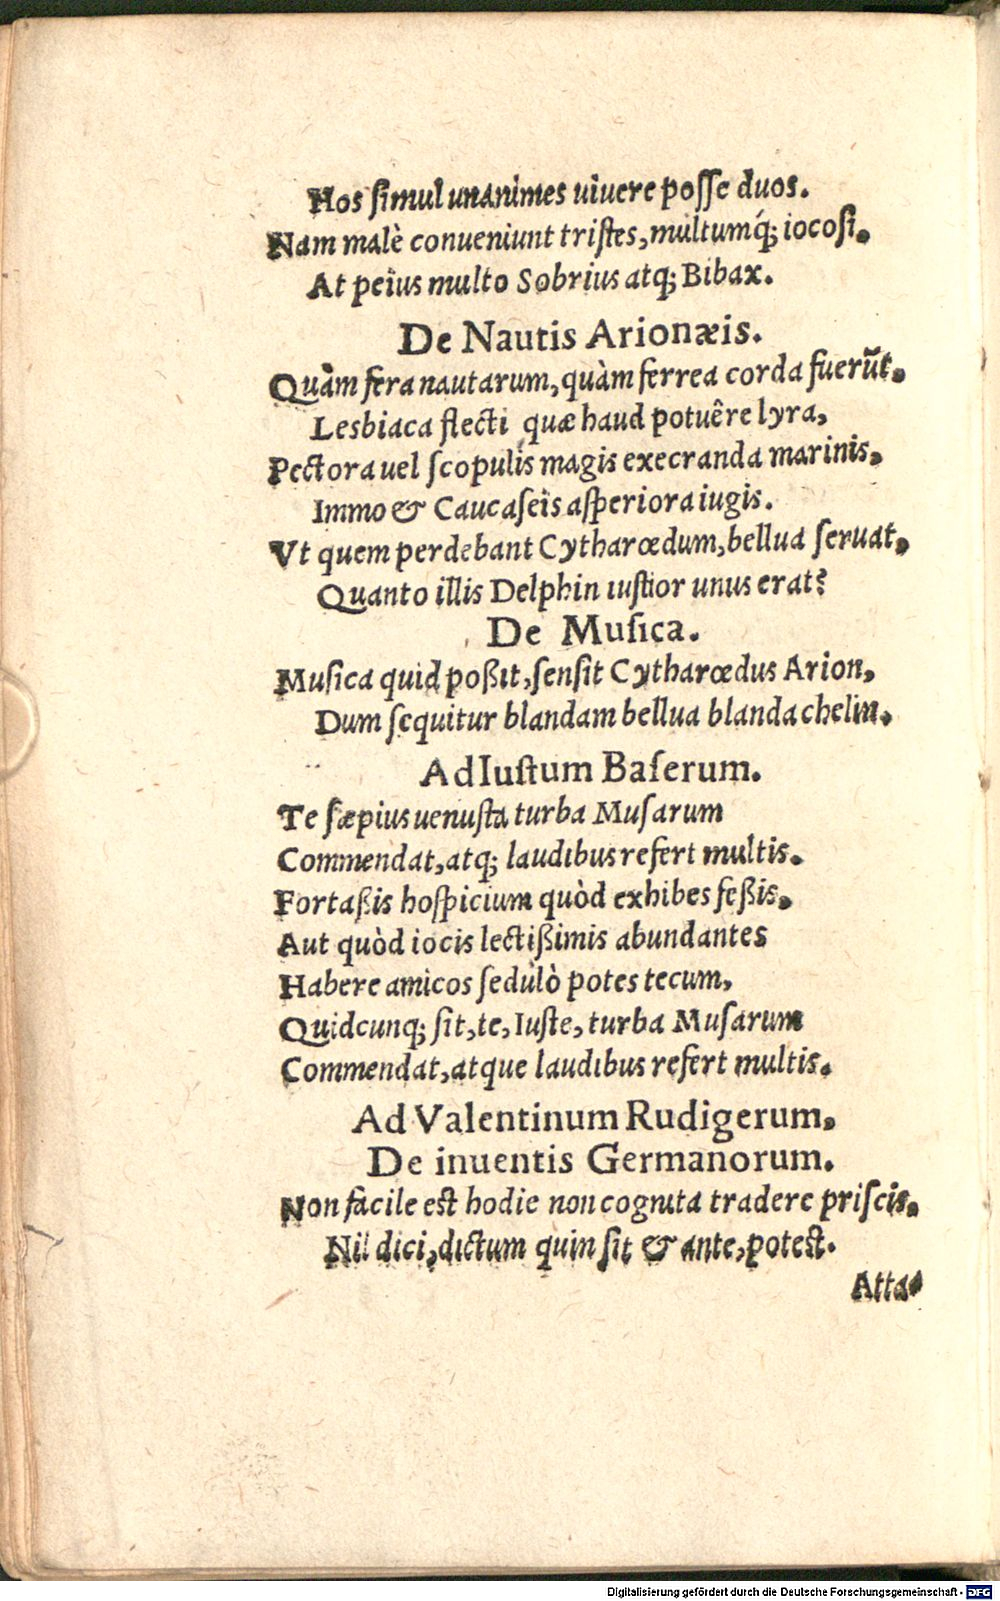 Hos simul unanimes uiuere posse duos.
Nam malè conueniunt tristes, multumq́; iocosi,
At peius multo Sobrius atq; Bibax.
De Nautis Arionæis.
Quàm fera nautarum, quàm ferrea corda fuerũt,
Lesbiaca flecti quæ haud potuêre lyra,
Pectora uel scopulis magis execranda marinis,
Immo & Caucaseis asperiora iugis.
Vt quem perdebant Cytharœdum, bellua seruat,
Quanto illis Delphin iustior unus erat?
De Musica.
Musica quid poßit, sensit Cytharœdus Arion,
Dum sequitur blandam bellua blanda chelin.
Ad Iustum Baserum.
Te sæpius uenusta turba Musarum
Commendat, atq; laudibus refert multis.
Fortaßis hospicium quòd exhibes feßis,
Aut quòd iocis lectißimis abundantes
Habere amicos sedulò potes tecum,
Quidcunq; sit, te, Iuste, turba Musarum
Commendat, atque laudibus refert multis.
Ad Valentinum Rudigerum,
De inuentis Germanorum.
Non facile est hodie non cognita tradere priscis,
Nil dici, dictum quin sit & ante, potest.
Atta-
Digitalisierung gefördert durch die Deutsche Forschungsgemeinschaft - DFG